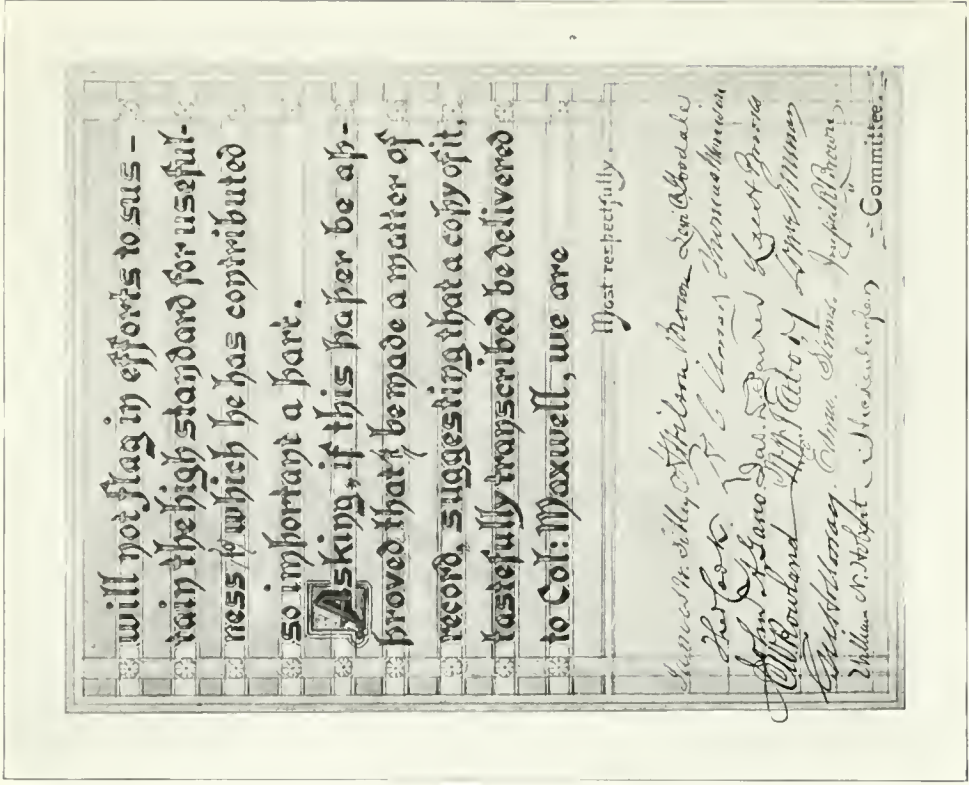 will not flag in efforts to sus-
tain the high standard for useful-
ness to which he has contributed
so important a part.
Asking, if this paper be ap-
proved that it be made a matter of
record, suggesting that a copy of it,
tastefully transcribed be delivered
to Col: Maxwell, we are
Most respectfully.
Wilson Levi C. Goodale
Theo Cook Thomas
John A. Gano Jas. D.
C W Rowland
Gustav
William N. Hobart
Committee.